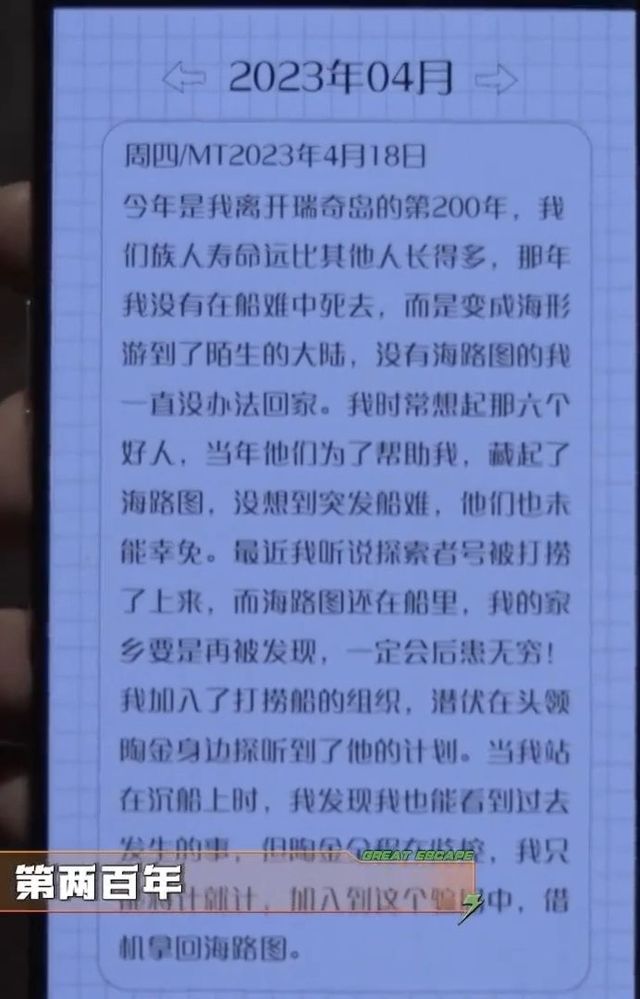 2023年04月
周四/MT2023年4月18日
今年是我离开瑞奇岛的第200年，我
们族人寿命远比其他人长得多，那年
我没有在船难中死去，而是变成海形
游到了陌生的大陆，没有海路图的我
一直没办法回家。我时常想起那六个
好人，当年他们为了帮助我，藏起了
海路图，没想到突发船难，他们也未
能幸免。最近我听说探索者号被打捞
了上来，而海路图还在船里，我的家
乡要是再被发现，一定会后患无穷！
我加入了打捞船的组织，潜伏在头领
陶金身边探听到了他的计划。当我站
在沉船上时，我发现我也能看到过去
发生的事，但陶金全程在监控，我只
将计就计，加入到这个骗中，借
机拿回海路图。
GREAT ESCAPE
第两百年